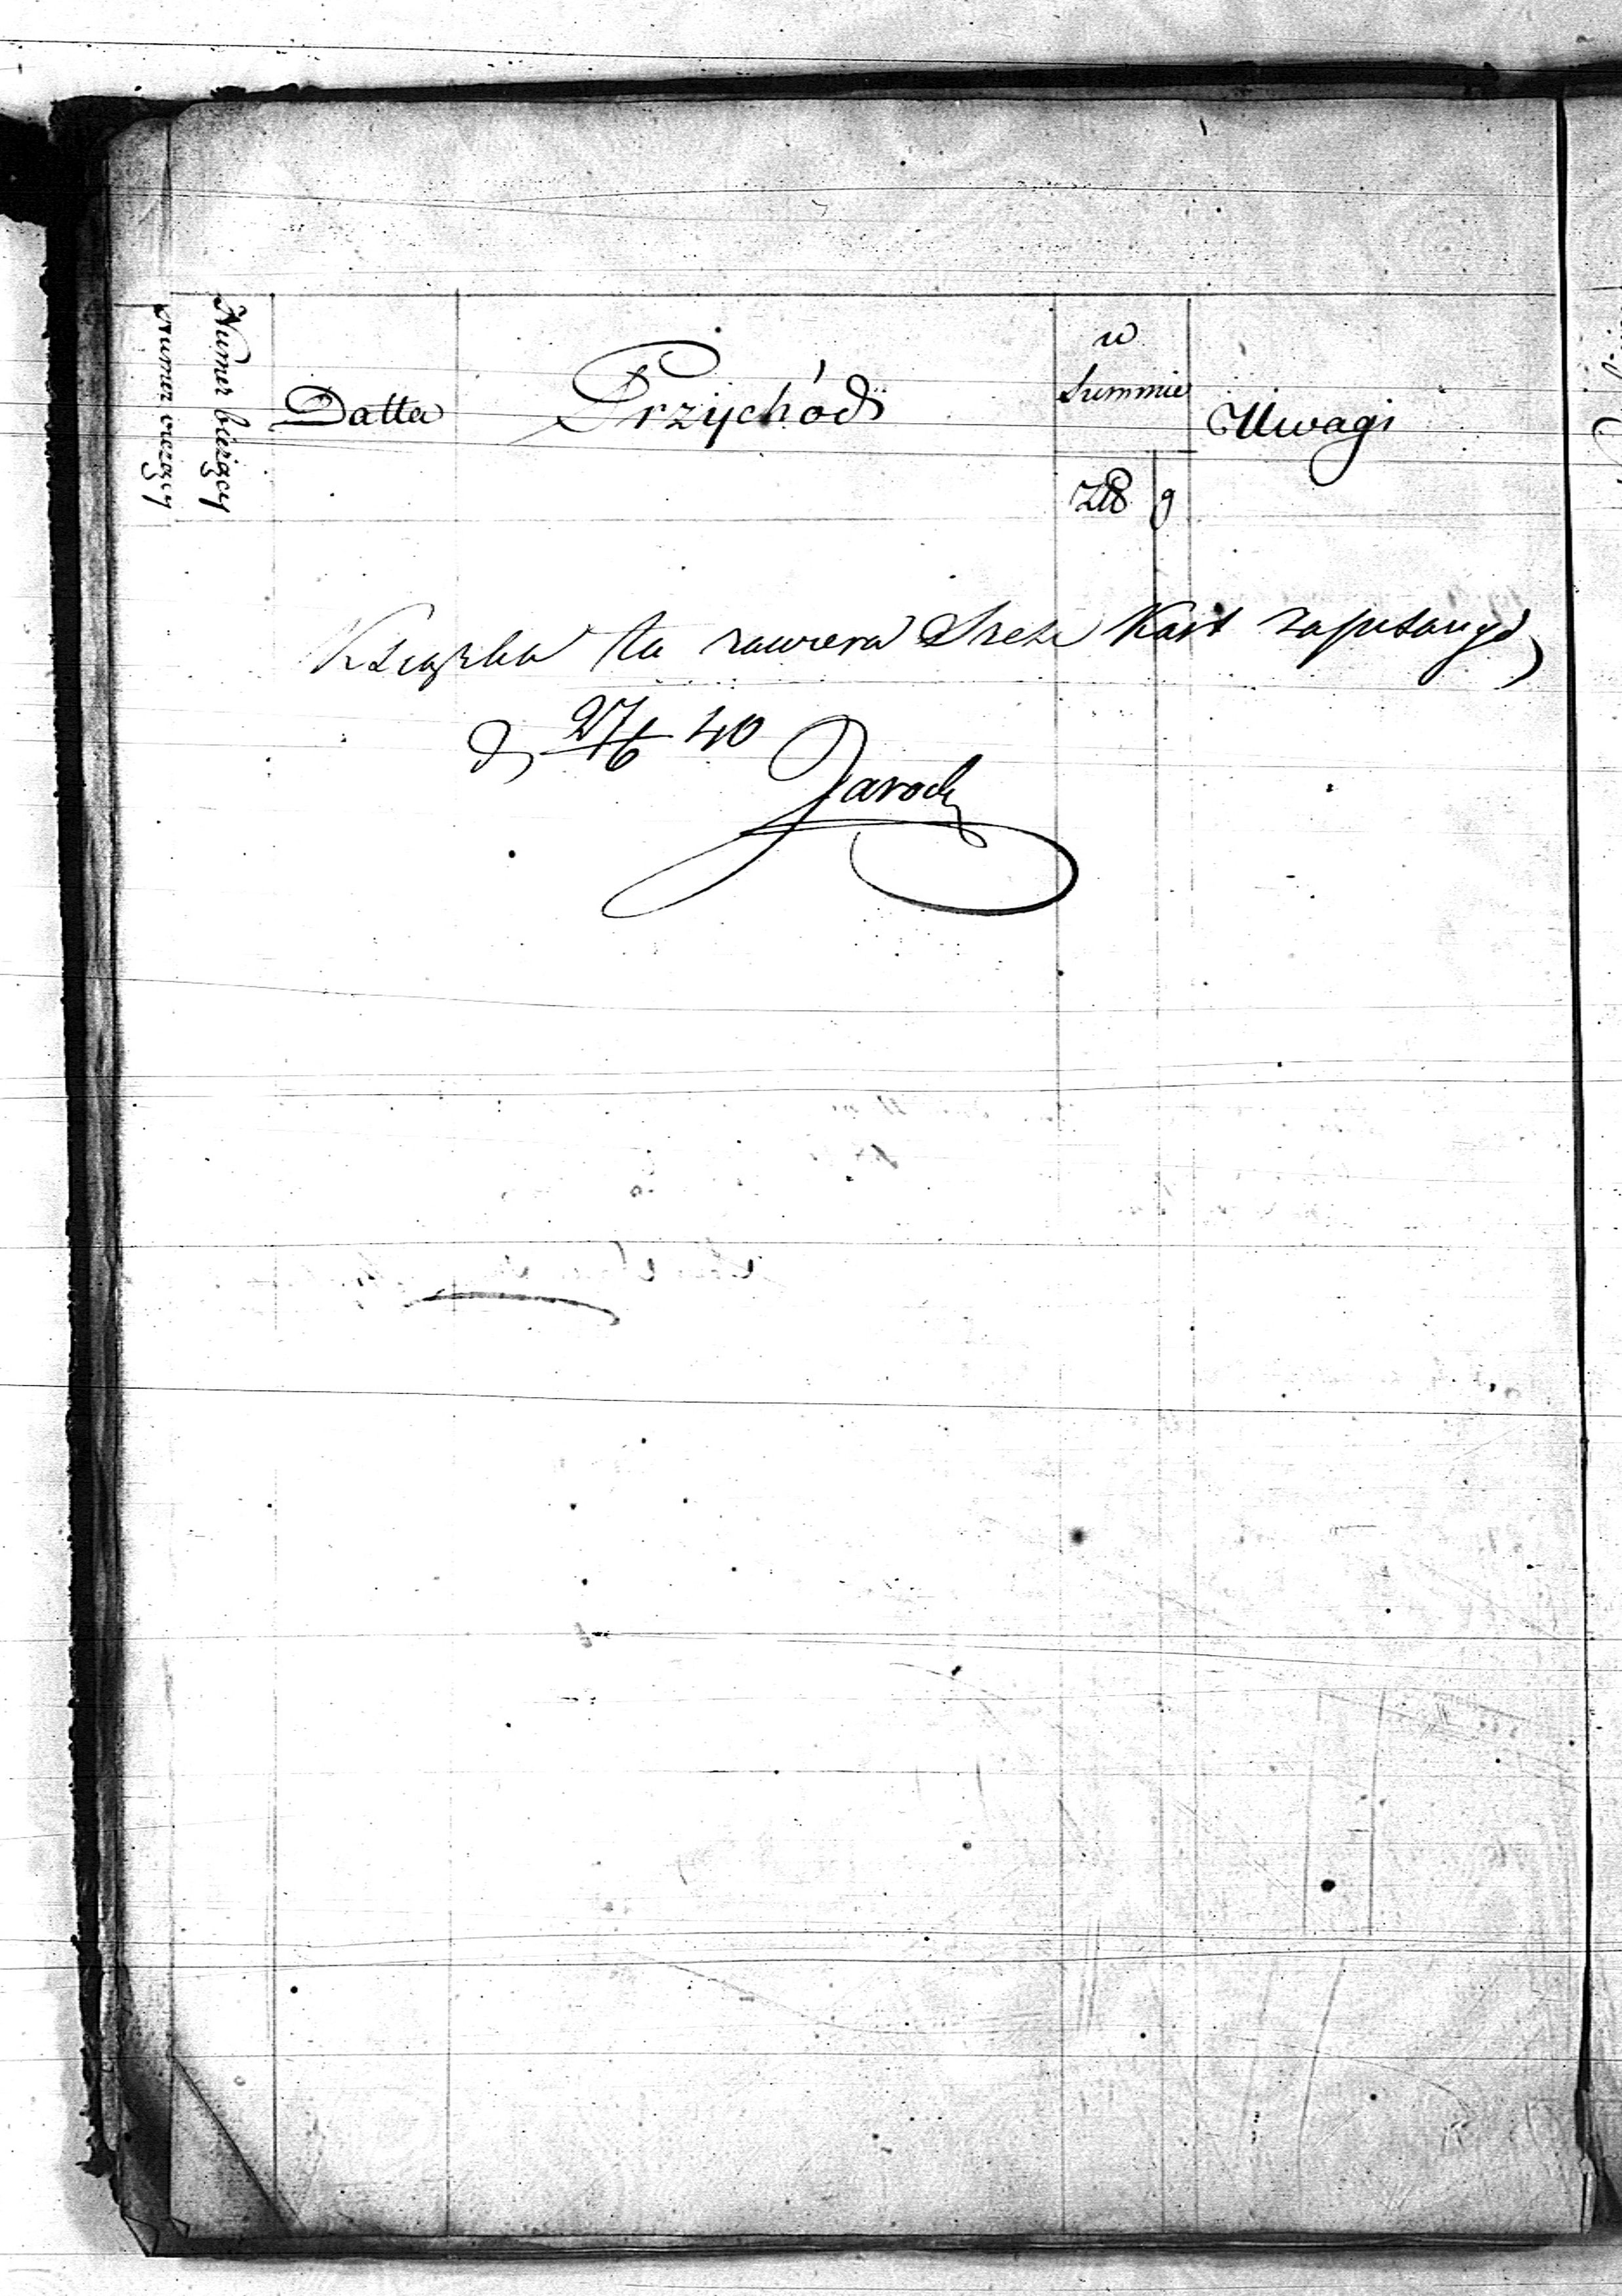 Numer bieżący
Numer bieżący
Datta
Przychód
w
Summie
Uwagi
Złp
g
Książka ta zawiera Kart zapisanych
d 27/6 40
Jarocki